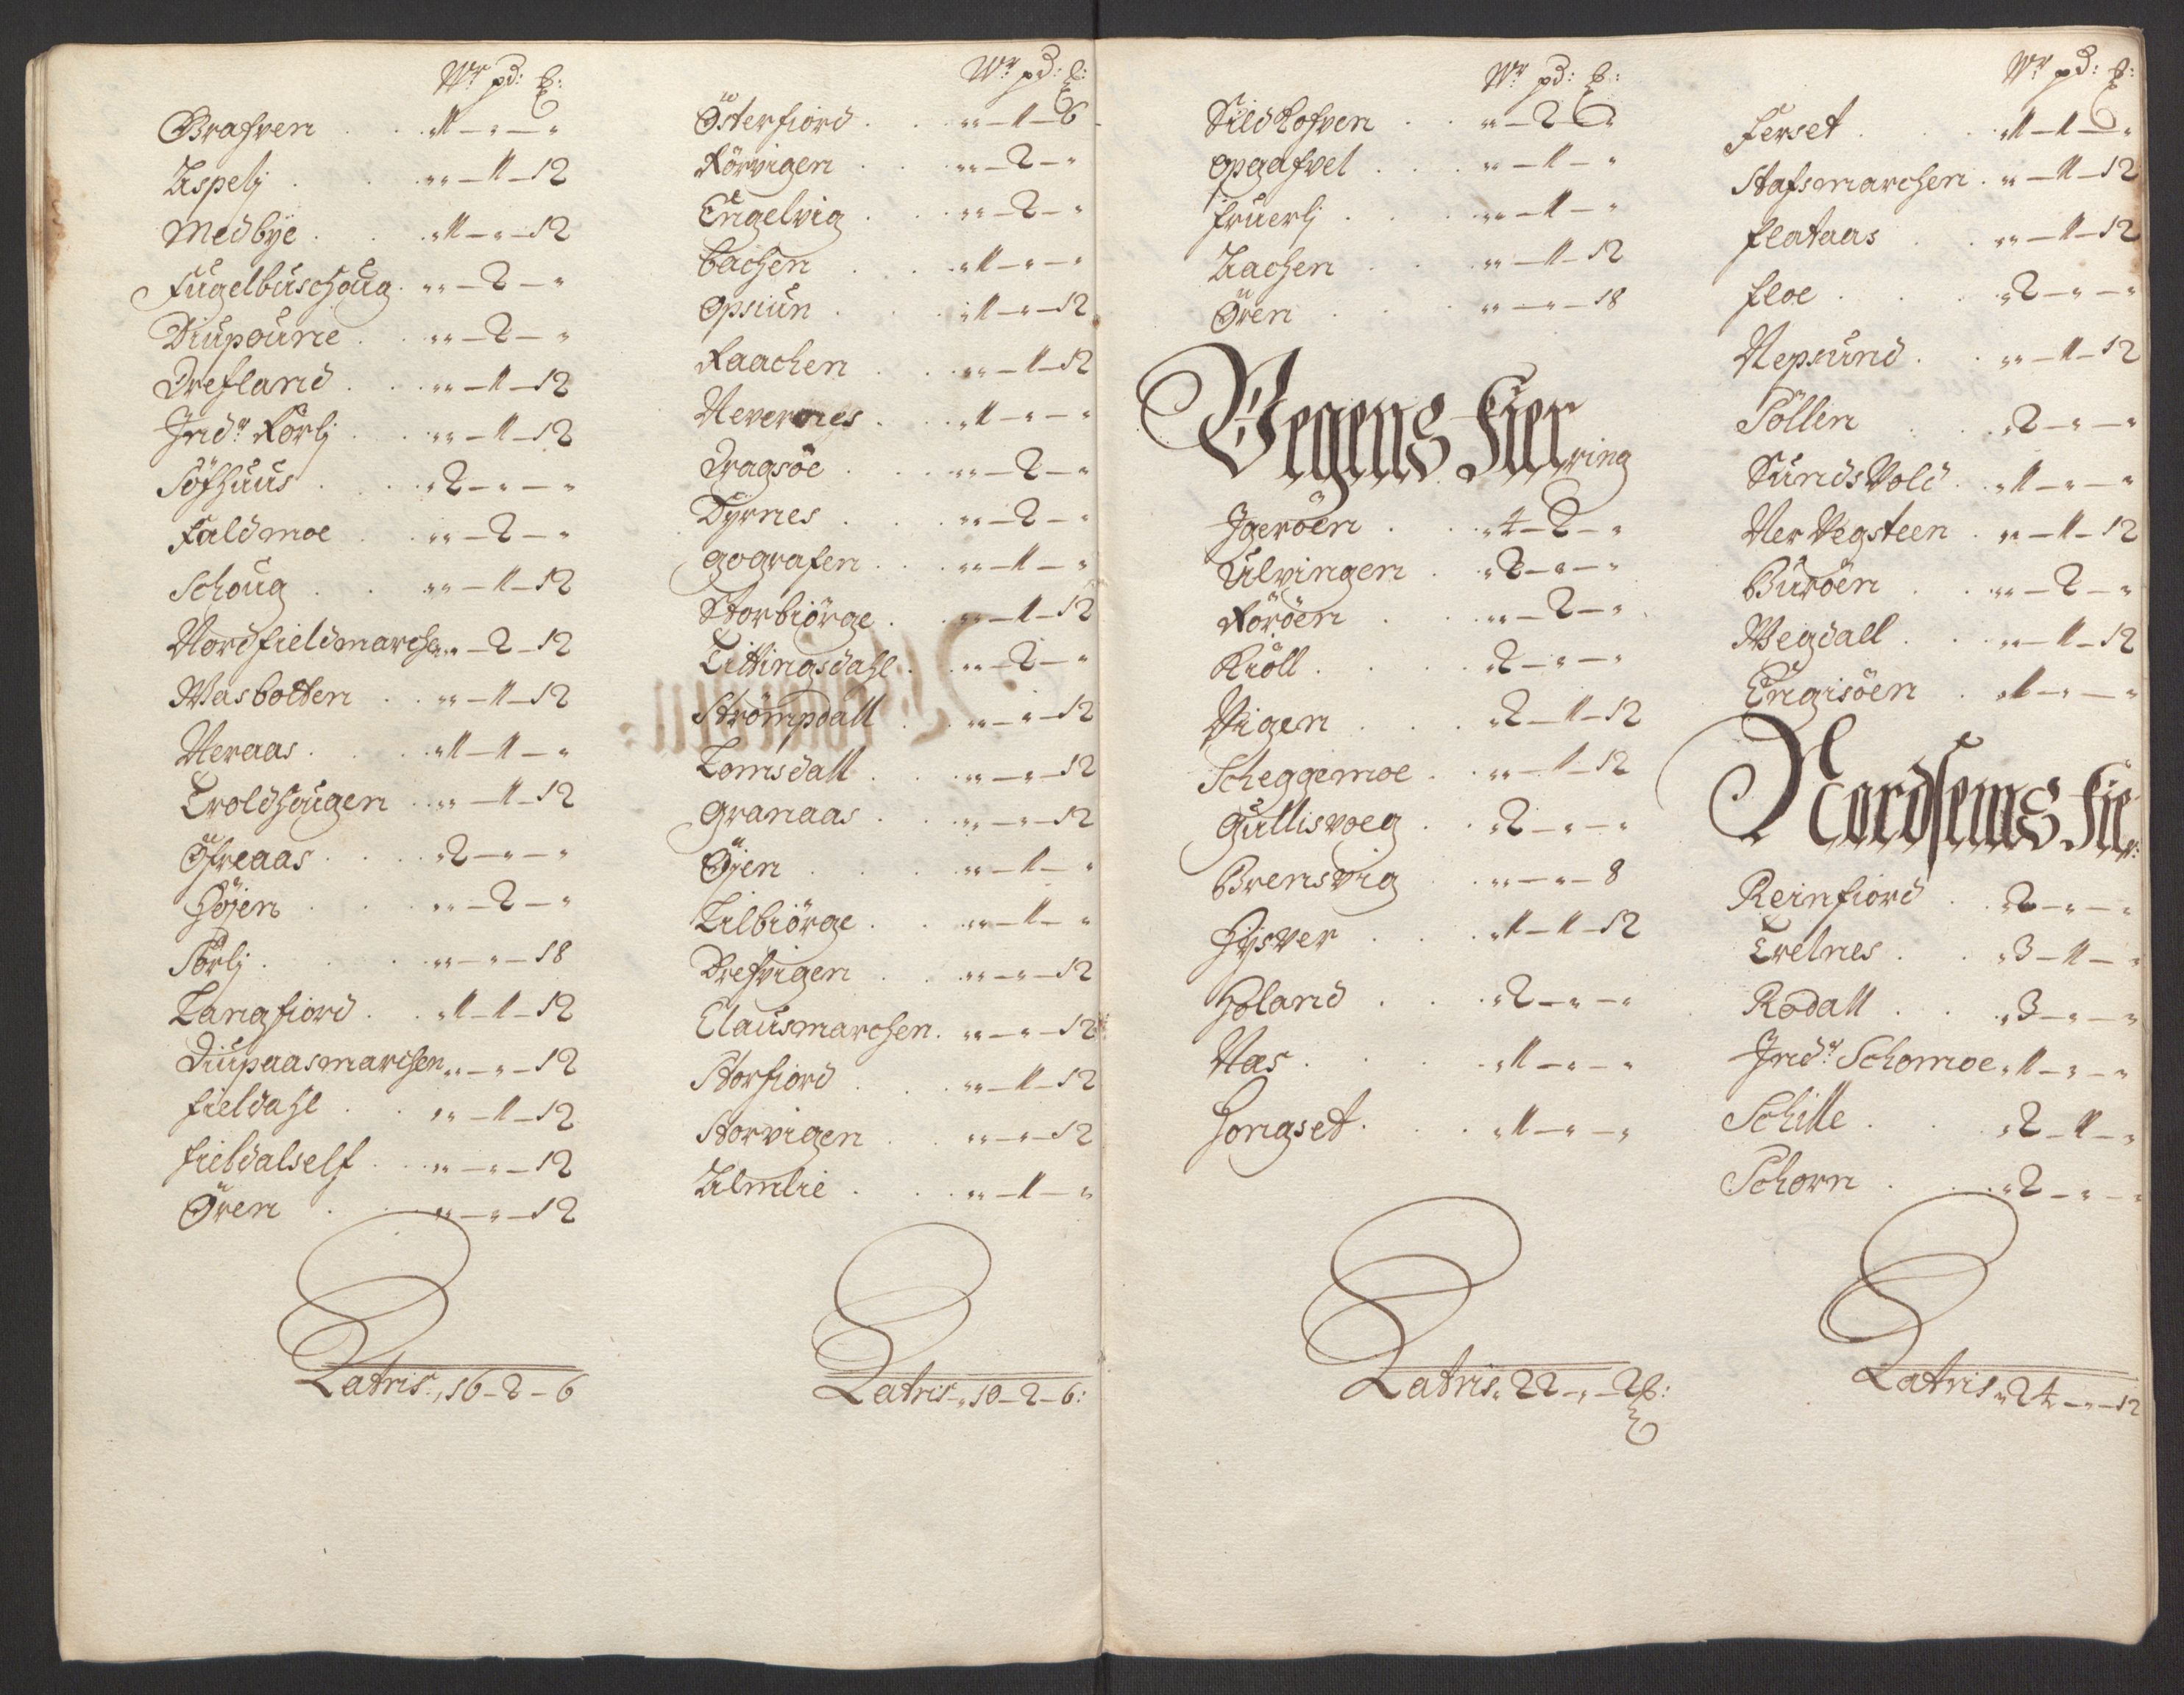 Wr pd: ℔:
Brafven . . „1 — „ — „
Aspelj . . „„ — 1 — 12
Medbÿe . . „1 — „ — 12
Fugelbuschoug . „„ — 2 — „
Diupourie . „„ — 2 — „
Drefland . . „„ — 1 — 12
Indr Rörlj . „„ — 1 — 12
Söfhuus . . „2 — „ — „
Faldmoe . „„ — 2 — „
Schoug . . „„ — 1 — 12
Nordfieldmarche „„ — 2 — 12
Wasbotten . . „„ — 1 — 12
Neraas . . „1 — 1 — „
Troldhougen . „„ — 1 — 12
Öfreaas . . „2 — „ — „
Höjen . . „„ — 2 — „
Sörlj . . „„ — „ — 18
Langfiord . . „1 — 1 — 12
Diupaasmarchen „„ — „ — 12
fieldahl . . „„ — 1 — 12
fieldalself . „„ — „ — 12
Ören . . „„ — „ — 12
Latris „ 16 — 2 — 6
Wr pd: ℔:
Österfiord . . „„ — 1 — 6
Rörvigen . . „„ — 2 — „
Engelvig . . „„ — 2 — „
bachen . . „1 — „ — „
Opsiun . . „1 — „ — 12
Raachen . . „„ — 1 — 12
Nevernes . . „1 — „ — „
Dragsöe . . „„ — 2 — „
Dyrnes . . „„ — 2 — „
gografen . . „„ — 1 — „
Storbiörge . „„ — 1 — 12
Tittingsdahl . „„ — 2 — „
Strömpdall . „„ — „ — 12
Tomsdall . . „„ — „ — 12
Granaas . . „„ — „ — 12
Öjen . . „„ — 1 — „
Lilbiörge . . „„ — 1 — „
Drefvigen . . „„ — „ — 12
Clausmarchen . „„ — „ — 12
Storfiord . . „„ — 1 — 12
Storvigen . . „„ — „ — 12
Almlie . . „„ — 1 — „
Latris „ 10 — 2 — 6:
Wr pd: ℔:
Sildhofven . . „„ — 2 — „
opgafvel . . „„ — 1 — „
fruerlj . . „„ — 1 — „
Aachen . . „„ — 1 — 12
Ören . . „„ — „ — 18
Vegens Fierring
Igeroen . . „4 — 2 — „
Ulvingen . „2 — „ — „
Röröen . . „„ — 2 — „
Kiöll . . „2 — „ — „
Vigen . . „2 — 1 — 12
Scheggemoe . „„ — 1 — 12
Gullisvoeg . . „2 — „ — „
Brensvig . „„ — „ — 8
Hÿsver . . „1 — 1 — 12
Holand . . „2 — „ — „
Vas . . „1 — „ — „
Hongset . . „1 — „ — „
Latris „ 22 — „ — 2 ℔:
Wr pd: ℔:
Ferset . . „1 — 1 — „
Stafsmarchen . „„ — 1 — 12
flataas . . „„ — 1 — 12
floe . . „2 — „ — „
Nepsund . . „„ — 1 — 12
Söllen . . „2 — „ — „
Sunds Vold . „1 — „ — „
Ner Vegsteen . „„ — 1 — 12
Buröen . . „„ — 2 — „
Wegdall . . „„ — 1 — 12
Engisöen . „1 — „ — „
Nordsems Fier:
Reinfiord . . „2 — „ — „
Trelnes . . „3 — 1 — „
Rödall . . „3 — „ — „
Indr Schomoe „1 — „ — „
Schille . . „2 — 1 — „
Schorn . . „2 — „ — „
Latris „ 24 — „ — 12